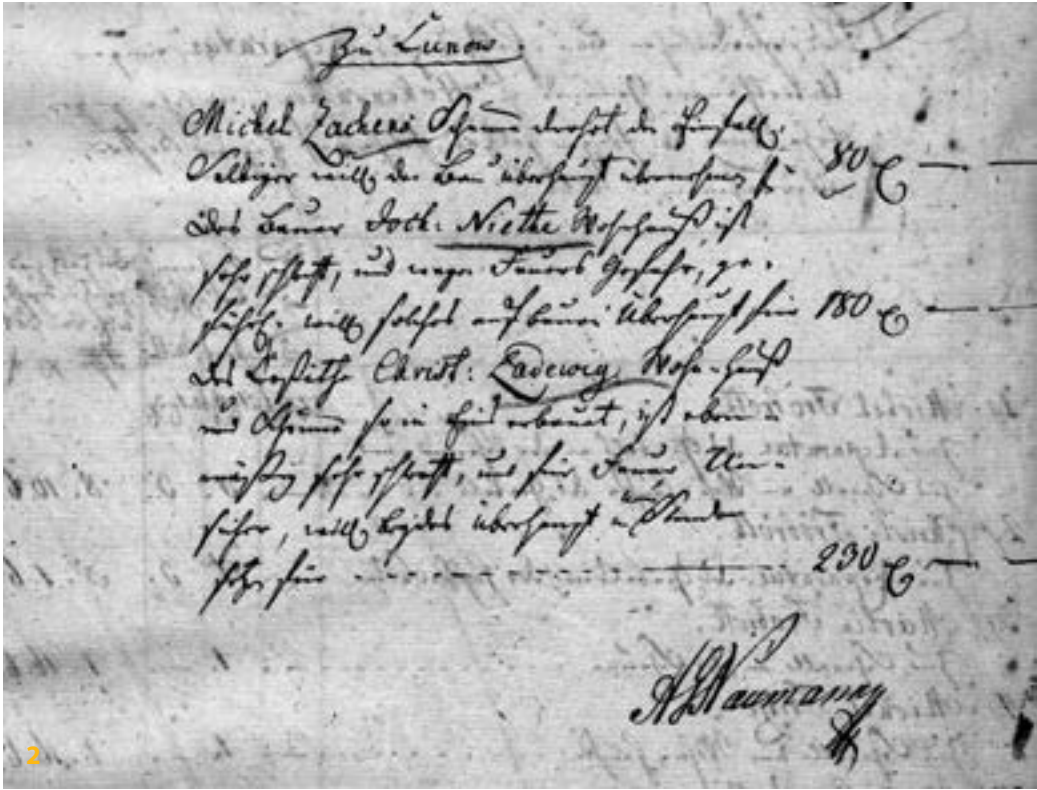 Zu Lunow.
Michel Zachers Scheune drohet den Einfall,
Selbiger will den Bau überhaupt übernehmen für 80
Des Bauer Joch: Niethe Wohnhauß ist
sehr schlecht, und wegen Feuers Gefahr, ge-
fährl. will solches auf bauen überhaupt für 180
Des Coßäthe Christ: Ladewig Wohn-Hauß
und Scheune so in Eins erbauet, ist eben
mäßig sehr schlecht, und für Feuer Un-
sicher, will beydes überhaupt in Stande
setzen für 230
Naumann
2